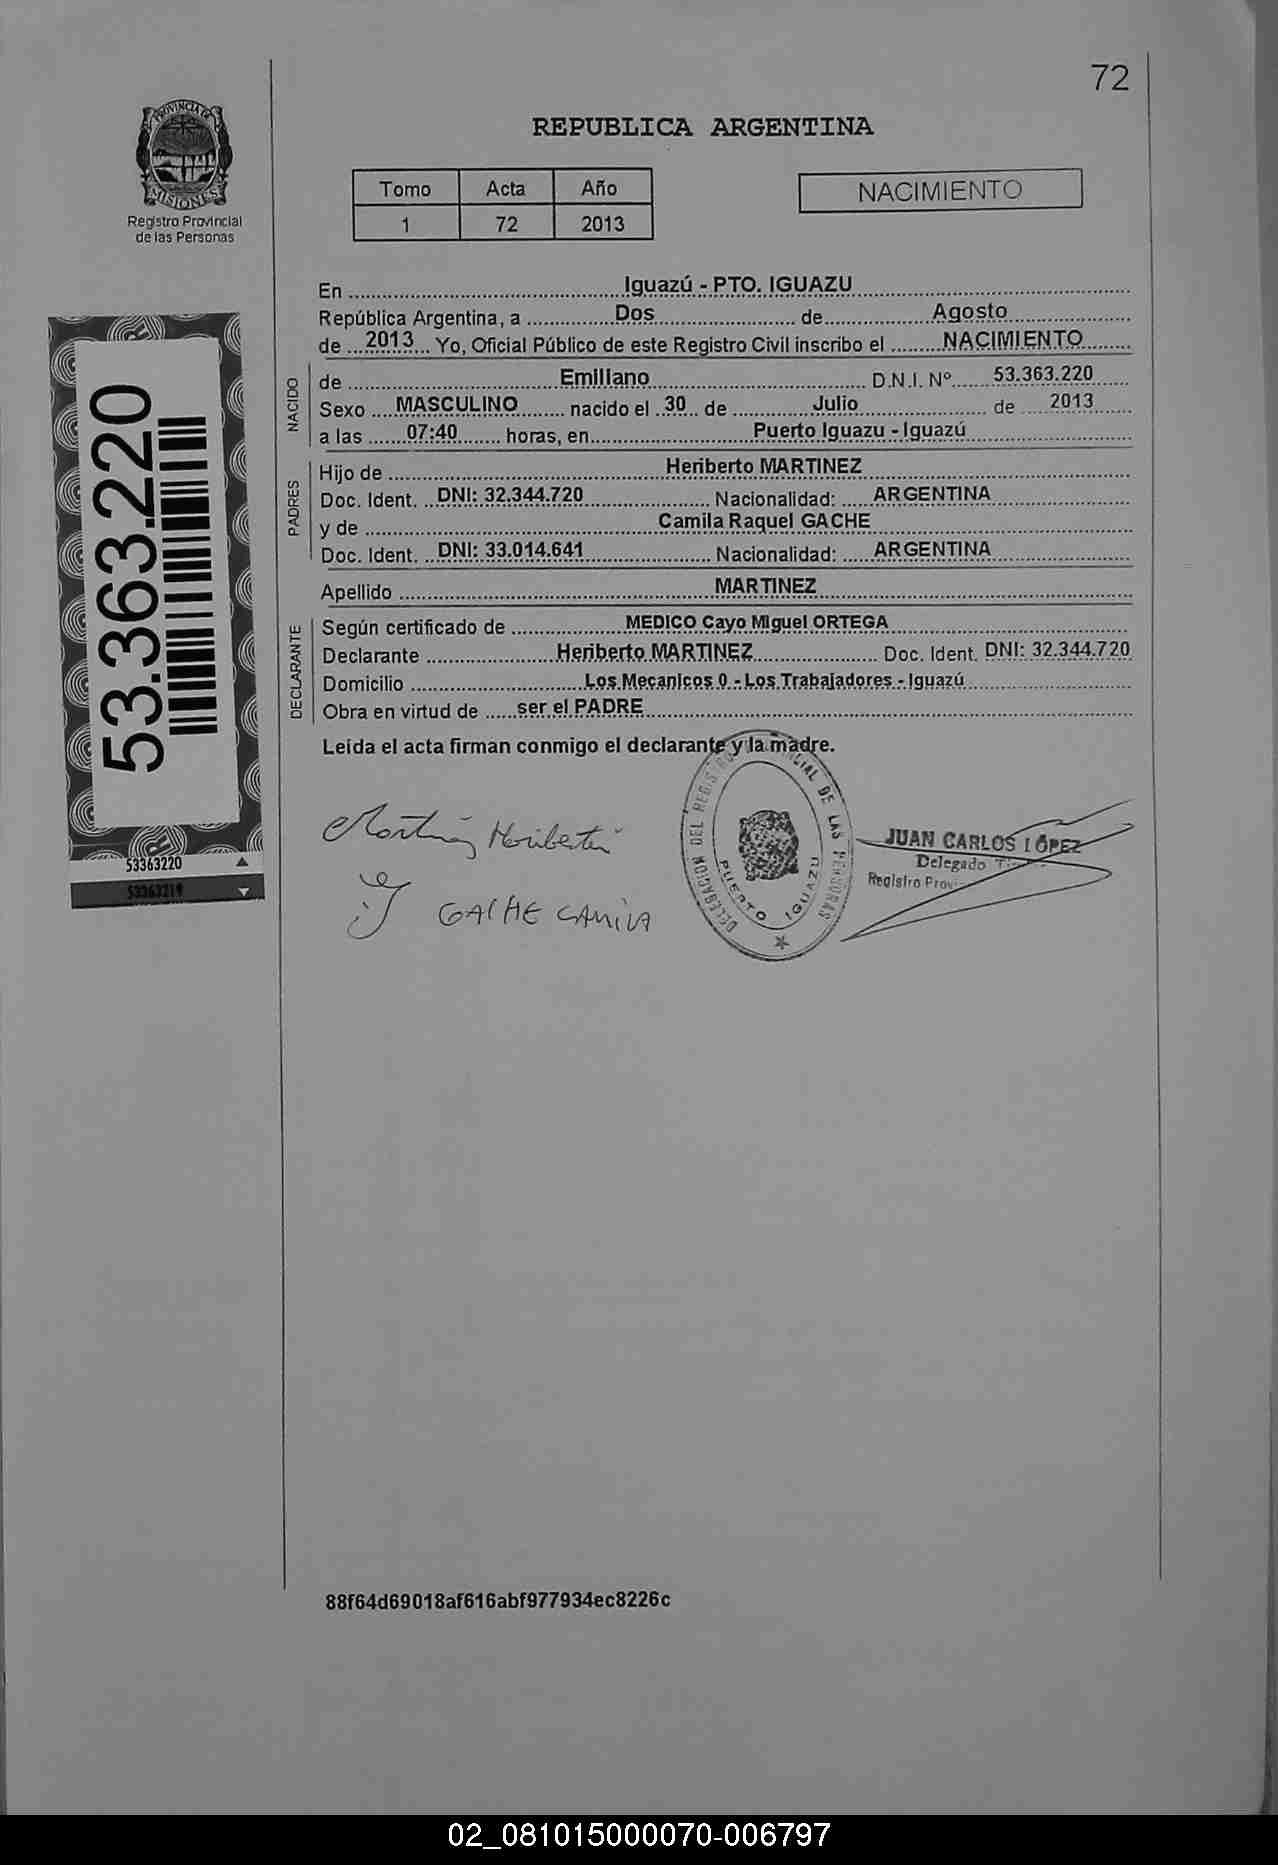 72
PROVINCIA DE
MISIONES
Registro Provincial
de las Personas
REPUBLICA ARGENTINA
Tomo Acta Año
1 72 2013
NACIMIENTO
En Iguazú - PTO. IGUAZU
República Argentina, a Dos de Agosto
de 2013 Yo, Oficial Público de este Registro Civil inscribo el NACIMIENTO
NACIDO
de Emiliano D.N.I. Nº 53.363.220
Sexo MASCULINO nacido el 30 de Julio de 2013
a las 07:40 horas, en Puerto Iguazu - Iguazú
PADRES
Hijo de Heriberto MARTINEZ
Doc. Ident. DNI: 32.344.720 Nacionalidad: ARGENTINA
y de Camila Raquel GACHE
Doc. Ident. DNI: 33.014.641 Nacionalidad: ARGENTINA
Apellido MARTINEZ
DECLARANTE
Según certificado de MEDICO Cayo Miguel ORTEGA
Declarante Heriberto MARTINEZ Doc. Ident. DNI: 32.344.720
Domicilio Los Mecanicos 0 - Los Trabajadores - Iguazú
Obra en virtud de ser el PADRE
Leída el acta firman conmigo el declarante y la madre.
53.363.220
53363220
53363219
Martinez Heriberto
GACHE CAMILA
DELEGACION DEL REGISTRO PROVINCIAL DE LAS PERSONAS
PUERTO IGUAZU
JUAN CARLOS LÓPEZ
Delegado
Registro
88f64d69018af616abf977934ec8226c
02_081015000070-006797